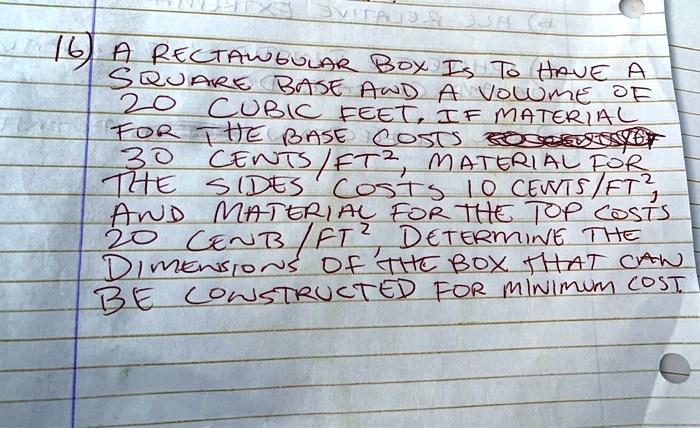 16) A RECTANGULAR BOX IS TO HAVE A
SQUARE BASE AND A VOLUME OF
20 CUBIC FEET. IF MATERIAL
FOR THE BASE COSTS
30 CENTS/FT², MATERIAL FOR
THE SIDES COSTS 10 CENTS/FT²,
AND MATERIAL FOR THE TOP COSTS
20 CENTS/FT², DETERMINE THE
DIMENSIONS OF THE BOX THAT CAN
BE CONSTRUCTED FOR MINIMUM COST.